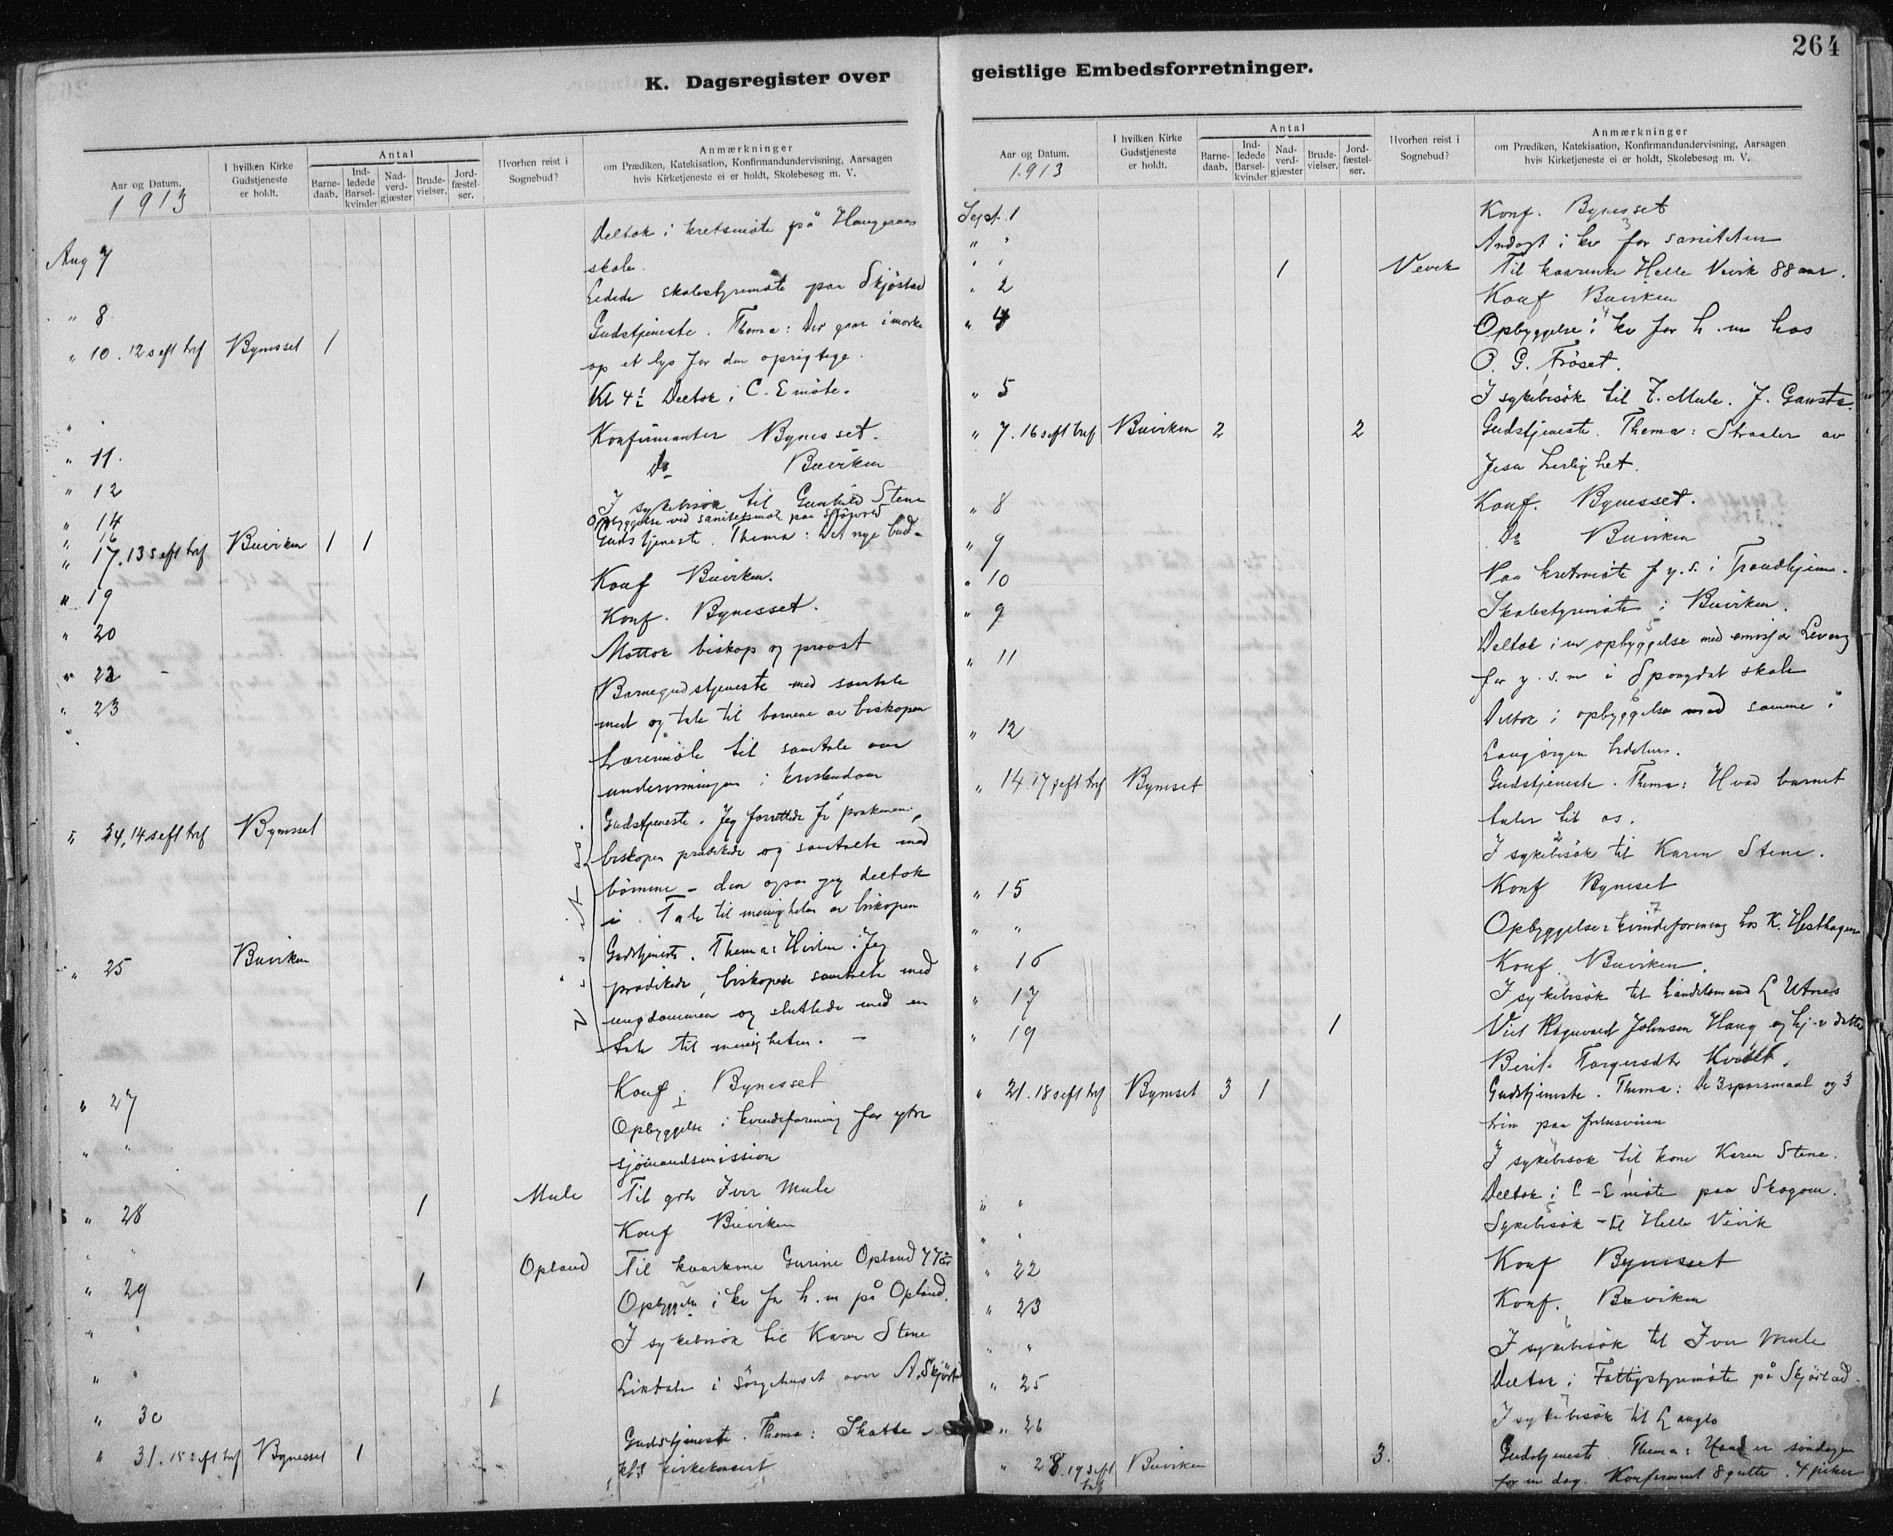 264
K. Dagsregister over
geistlige Embedsforretninger.
Aar og Datum.
1913
I hvilken Kirke
Gudstjeneste
er holdt.
Antal
Barne-
daab.
Ind-
ledede
Barsel-
kvinder
Nad-
verd-
gjæster
Brude-
vielser.
Jord-
fæstel-
ser.
Hvorhen reist i
Sognebud?
Anmærkninger
om Prædiken, Katekisation, Konfirmandundervisning, Aarsagen
hvis Kirketjeneste ei er holdt, Skolebesøg m. V.
Aug 7 Deltok i kretsmöte på
skole.
" 8 Ledede skolestyremöte paa Skjöstad
" 10. 12 s eft trf Bynesset 1 Gudstjeneste. Thema: Der gaar i mörke
op et lys for den oprigtige.
" " Kl 4½ Deltok i C. E möte.
" 11. Konfirmanter Bynesset.
" 12 Do Buviken
" 14 I sykebesök til Gunhild Stene
" 16 Opbyggelse ved sanitetsmöte paa
" 17. 13 s eft trf Buviken 1 1 Gudstjeneste. Thema: Det nye bud.
" 19 Konf Buviken.
" 20 Konf. Bynesset.
" 22 - Mottok biskop og proost
" 23 Barnegudstjeneste med samtale
med og tale til barnene av biskopen
" Lærermöte til samtale om
undervisningen i kristendom
" 24, 14 s eft trf Bynesset Gudstjeneste. Jeg forrettede fr prækenen,
biskopen prædikede og samtalte med
börnene - den ogsaa jeg deltok
i. Tale til menigheten av biskopen
" 25 Buviken Gudstjeneste. Thema: Hirten. Jeg
prædikede, biskopen samtalte med
ungdommen og sluttede med en
tale til menigheten. -
" 27 Konf. Bynesset
" " Opbyggelse i kvindeforening for ytre
sjömandsmission
" 28 1 Mule Til grb Iver Mule
" " Konf Buviken
" 29 1 Opland Til kaarkone Gurine Opland 77 år
" " Opbyggelse i kv for h.m på Opland.
" " I sykebesök til Karen Stene
" 30 1 Liktale i sörgehuset over A. Skjöstad
" 31. 15 s eft trf Bynesset 1 Gudstjeneste. Thema: Skatte
kirkekonsert
Aar og Datum.
1913
I hvilken Kirke
Gudstjeneste
er holdt.
Antal
Barne-
daab.
Ind-
ledede
Barsel-
kvinder
Nad-
verd-
gjæster
Brude-
vielser.
Jord-
fæstel-
ser.
Hvorhen reist i
Sognebud?
Anmærkninger
om Prædiken, Katekisation, Konfirmandundervisning, Aarsagen
hvis Kirketjeneste ei er holdt, Skolebesøg m. V.
Sept. 1 Konf. Bynesset
" " Andagt i kv for saniteten
" " 1 Vevik Til kaarenke Helle Vevik 88 aar.
" 2 Konf Buviken
" 4 Opbyggelse i kv for h.m hos
O. G. Fröset.
" 5 I sykebesök til I. Mule. J. Gaustad.
" 7. 16 s eft trf Buviken 2 2 Gudstjeneste. Thema: Straaler av
Jesu herlighet.
" 8 Konf. Bynesset.
" 9 Do Buviken
" 10 Paa kretsmöte f y. s. i Trondhjem.
" 9 Skolestyremöte i Buviken.
" 11 Deltok i en opbyggelse med emissær Levang
for y. s. m i Spongdal skole
" 12 Deltok i opbyggelse med samme i
Langörgen bedehus.
" 14. 17 s eft trf Bynset Gudstjeneste. Thema: Hvad barnet
taler til os.
I sykebesök til Karen Stene.
" 15 Konf Bynset
" " Opbyggelse i kvindeforening hos K. Hesthagen
" 16 Konf Buviken.
" 17 I sykebesök til handelsmand L Utnes
" 19 1 Viet Ragnvald Johnsen Haug og
Berit Torgersdtr
" 21. 18 s eft trf Bynset 3 1 Gudstjeneste. Thema: De 3 spörsmaal og 3
trin paa frelsesveien
I sykebesok til kone Karen Stene.
" " Deltok i C - E möte paa Skogom.
" " Sykebesök - til Helle Vevik
" 22 Konf Bynesset
" 23 Konf. Buviken
" " I sykebesök til Iver Mule
" 25 Deltok i Fattigstyremöte på Skjöstad.
" 26 I sykebesök til Langlo
" 28. 19 s eft trf Buviken 3. Gudstjeneste. Thema: Hvad er söndagen
for en dag. Konfirmeret 8 gutter. 4 piker